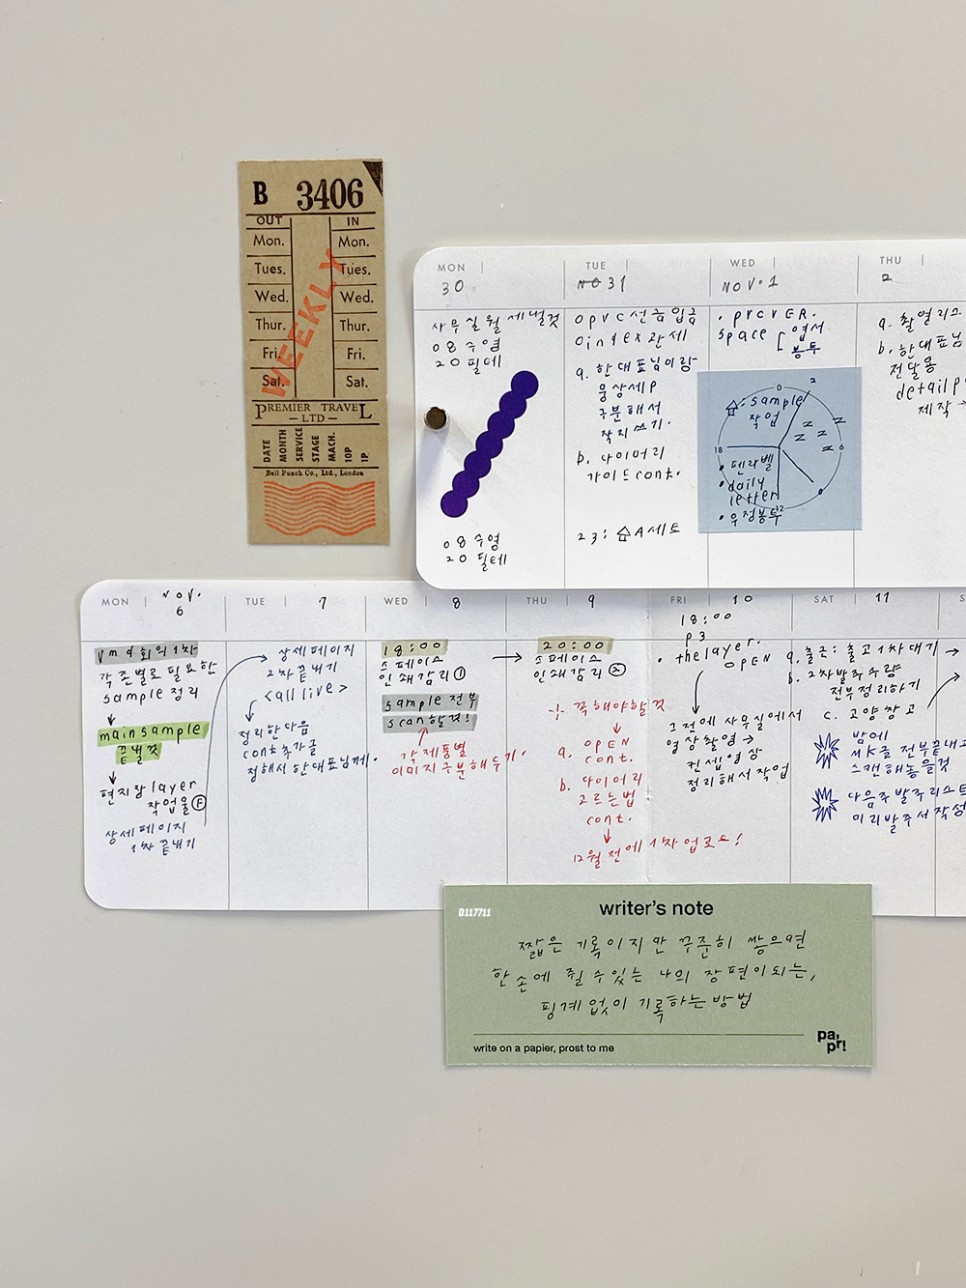 B 3406
OUT IN
Mon. Mon.
Tues. Tues.
Wed. Wed.
Thur. Thur.
Fri. Fri.
Sat. Sat.
WEEKLY
PREMIER TRAVEL
— LTD —
DATE
MONTH
SERVICE
STAGE
MACH.
10P
1P
Bell Punch Co., Ltd., London
MON
30
사무실 월세 낼것
08 수영
20 필테
08 수영
20 필테
TUE
31
opvc선금입금
a. 한대표님이랑
웅상세P
구분해서
작지쓰기.
b. 다이어리
가이드cont.
23: A세트
WED
NOV. 1
space 엽서
봉투
0
2
6
12
18
: sample
작업
z z z z z
• 펜라벨
• daily
letter
• 우정봉투
THU
2
a. 촬영리스
b. 한대표님
전달용
detail p
제작 →
MON
NOV.
6
회의 1차
각 존별로 필요한
sample 정리
main sample
끝낼것
layer
작업물 F
상세페이지
1차 끝내기
TUE 7
상세페이지
2차 끝내기
<all live>
정리한다음
cont추가글
정해서 한대표님께.
WED 8
18:00
스페이스
인쇄감리 ①
sample 전부
scan할것!
각 제품별
이미지 구분해두기.
THU 9
20:00
스페이스
인쇄감리 ②
꼭해야할것
a. OPEN
cont.
b. 다이어리
고르는법
cont.
12월 전에 1차 업로드!
FRI 10
18:00
p3
• thelayer.
OPEN
그전에 사무실에서
영상촬영 →
컨셉영상
정리해서 작업
SAT 11
a. 출근: 출고 1차 대기 →
b. 2차발주수량
전부정리하기
c. 고양창고
밤에
MK글 전부끝내고
스캔해놓을것
다음주발주리스트
미리발주서작성
S
B117711
writer's note
짧은 기록이지만 꾸준히 쌓으면
한 손에 쥘 수 있는 나의 장편이 되는,
핑계없이 기록하는 방법
write on a papier, prost to me
pa,
pr!